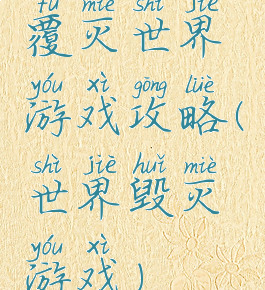 fù miè shì jiè
覆灭世界
yóu xì gōng lüè
游戏攻略(
shì jiè huǐ miè
世界毁灭
yóu xì
游戏)